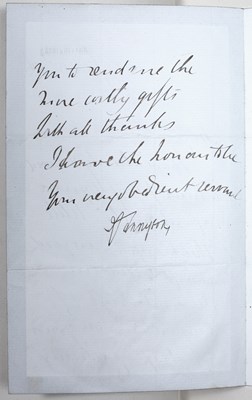 you to send me the
more costly gifts
With all thanks
I have the honour to be
Your very obedient servant
A Tennyson